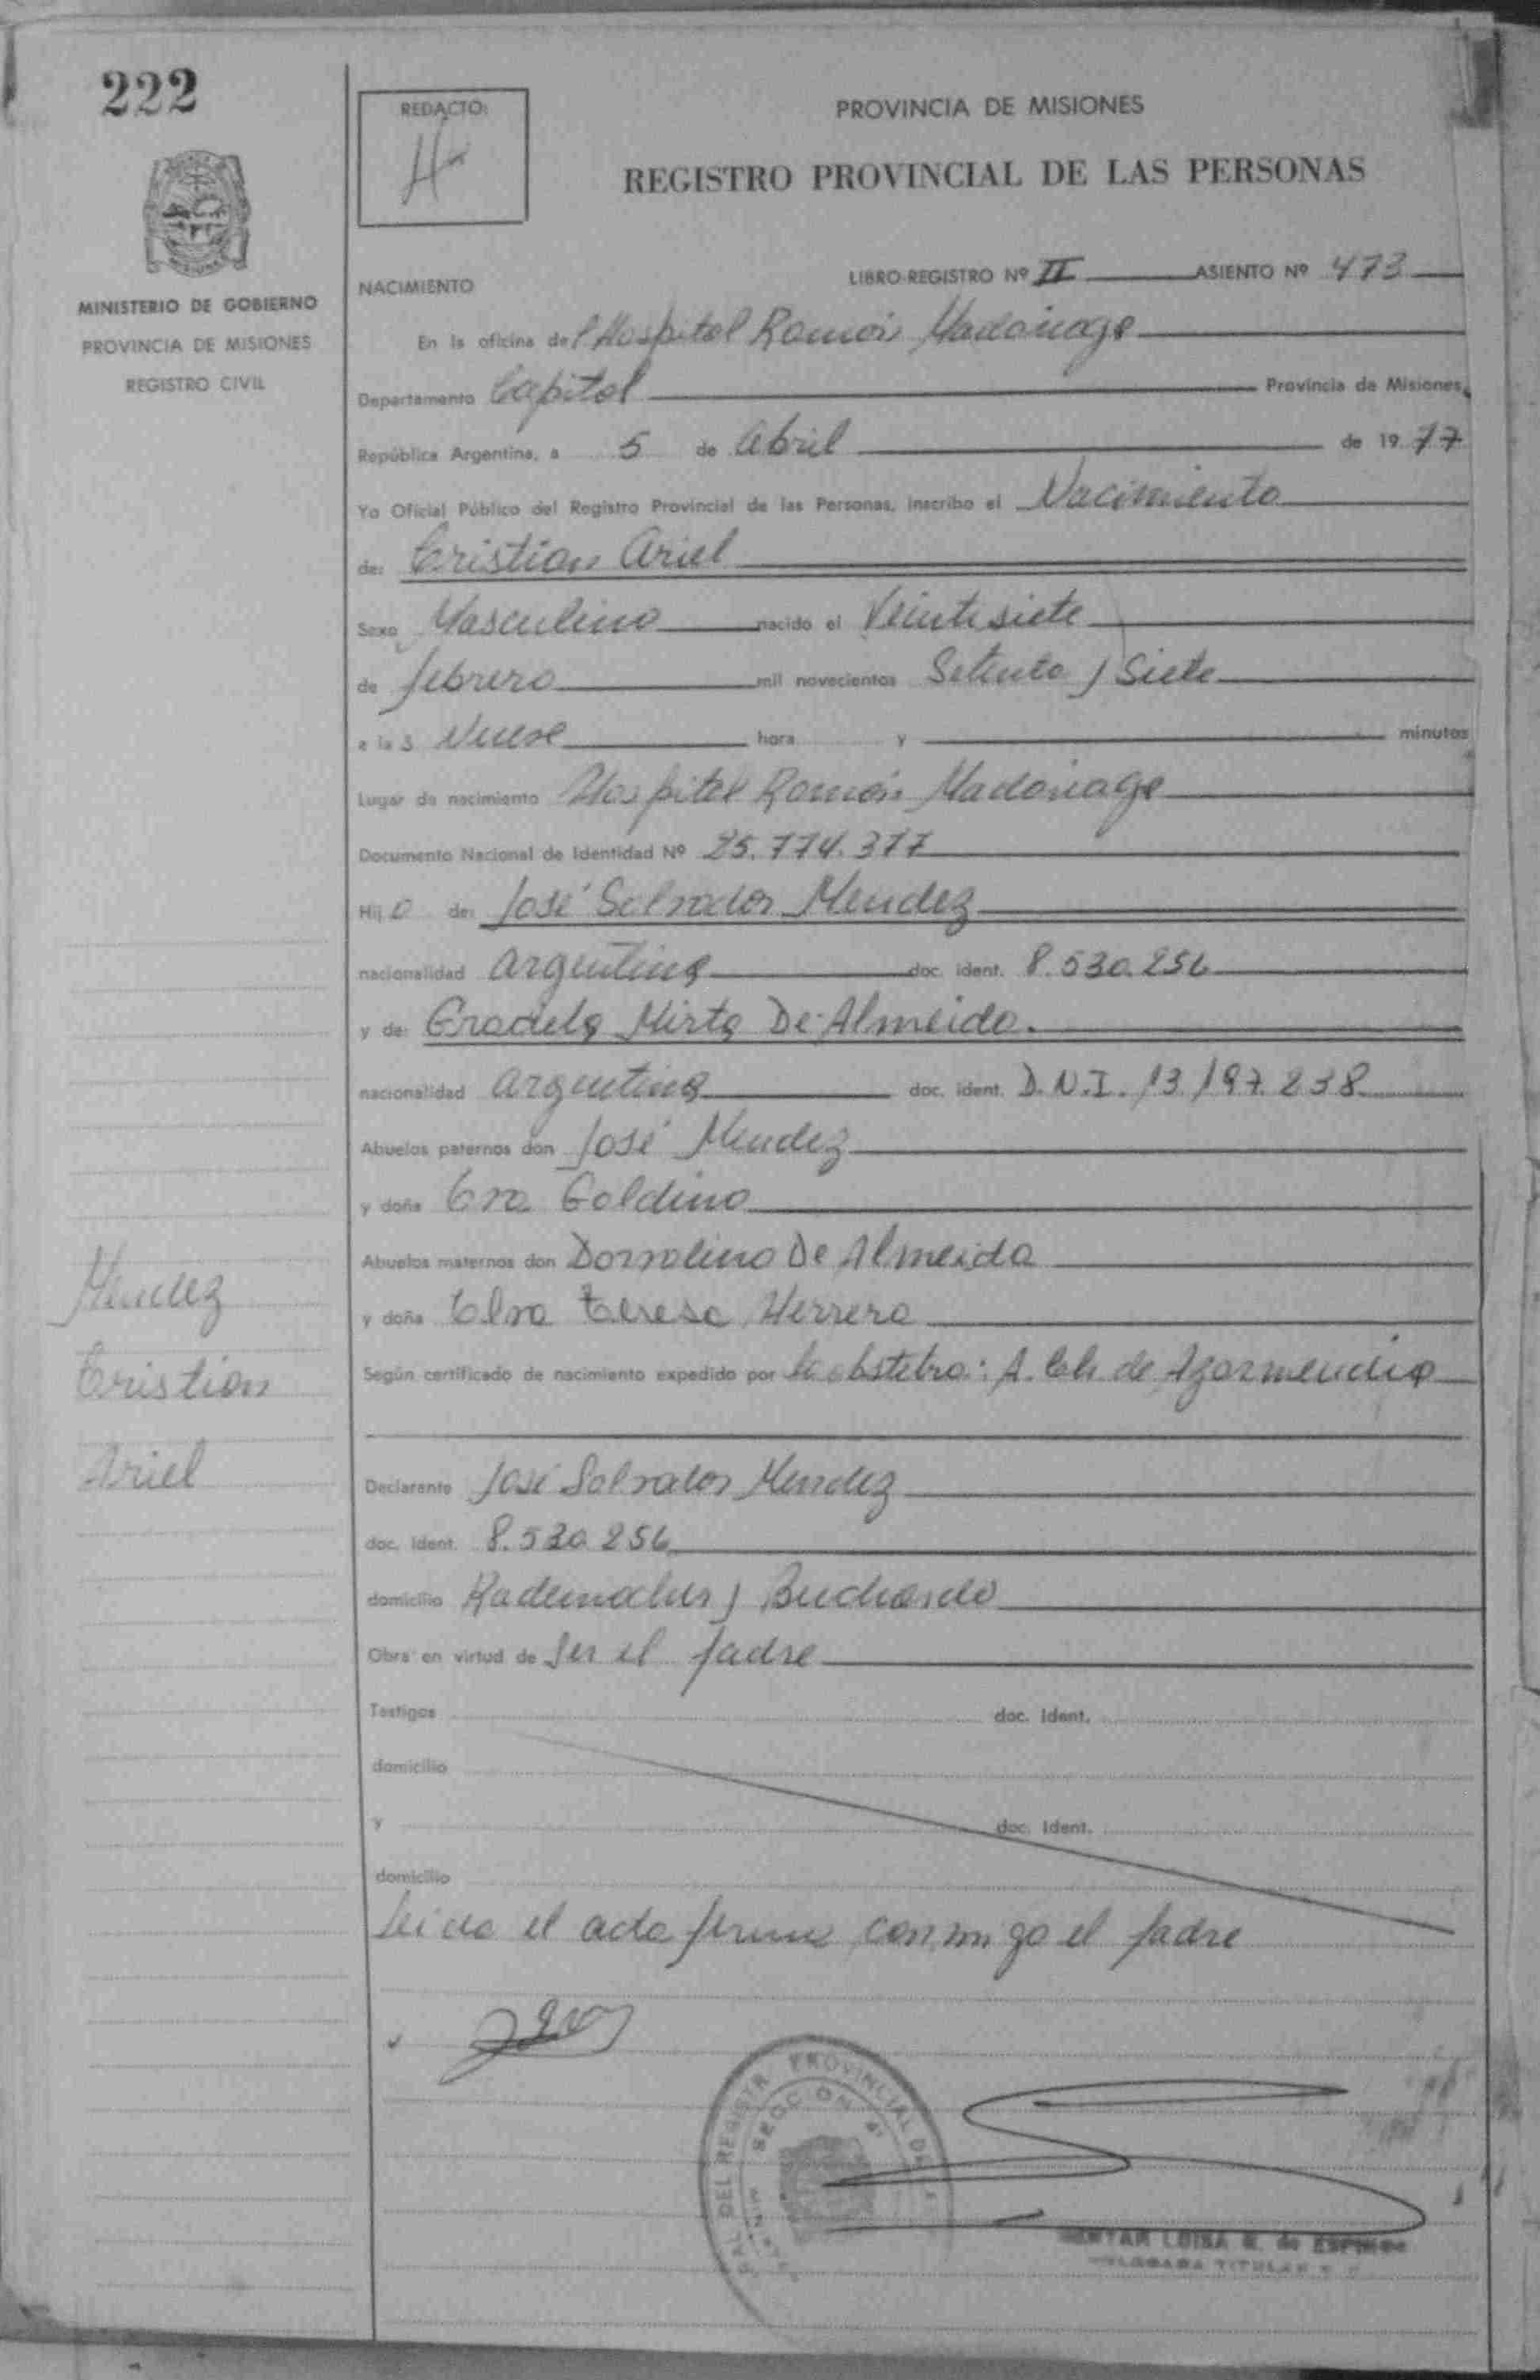 222
REDACTO:
PROVINCIA DE MISIONES
REGISTRO PROVINCIAL DE LAS PERSONAS
MINISTERIO DE GOBIERNO
PROVINCIA DE MISIONES
REGISTRO CIVIL
NACIMIENTO
LIBRO-REGISTRO Nº II ASIENTO Nº 473
En la oficina del Hospital Ramón Madariaga
Departamento Capital Provincia de Misiones,
República Argentina, a 5 de Abril de 1977
Yo Oficial Público del Registro Provincial de las Personas, inscribo el Nacimiento
de: Cristian Ariel
Sexo Masculino nacido el Veintisiete
de febrero mil novecientos Setenta y Siete
a las Nueve hora y minutos
Lugar de nacimiento Hospital Ramón Madariaga
Documento Nacional de Identidad Nº 25.774.377
Hijo de: José Salvador Mendez
nacionalidad argentina doc. ident. 8.530.256
y de: Graciela Mirta De Almeida.
nacionalidad argentina doc. ident. D.N.I. 13.197.238
Abuelos paternos don José Mendez
y doña Galdino
Abuelos maternos don Dorvalino De Almeida
y doña Elva Teresa Herrera
Según certificado de nacimiento expedido por la obstetra: A. de Azarmendia
Mendez
Cristian
Ariel
Declarante José Salvador Mendez
doc. ident. 8.530.256
domicilio y Buchardo
Obra en virtud de ser el padre
Testigos doc. ident.
domicilio
y doc. ident.
domicilio
Leida el acta firma conmigo el padre
DEL REGISTR PROVINCIAL DE
SECCION
LUISA de
TITULAR